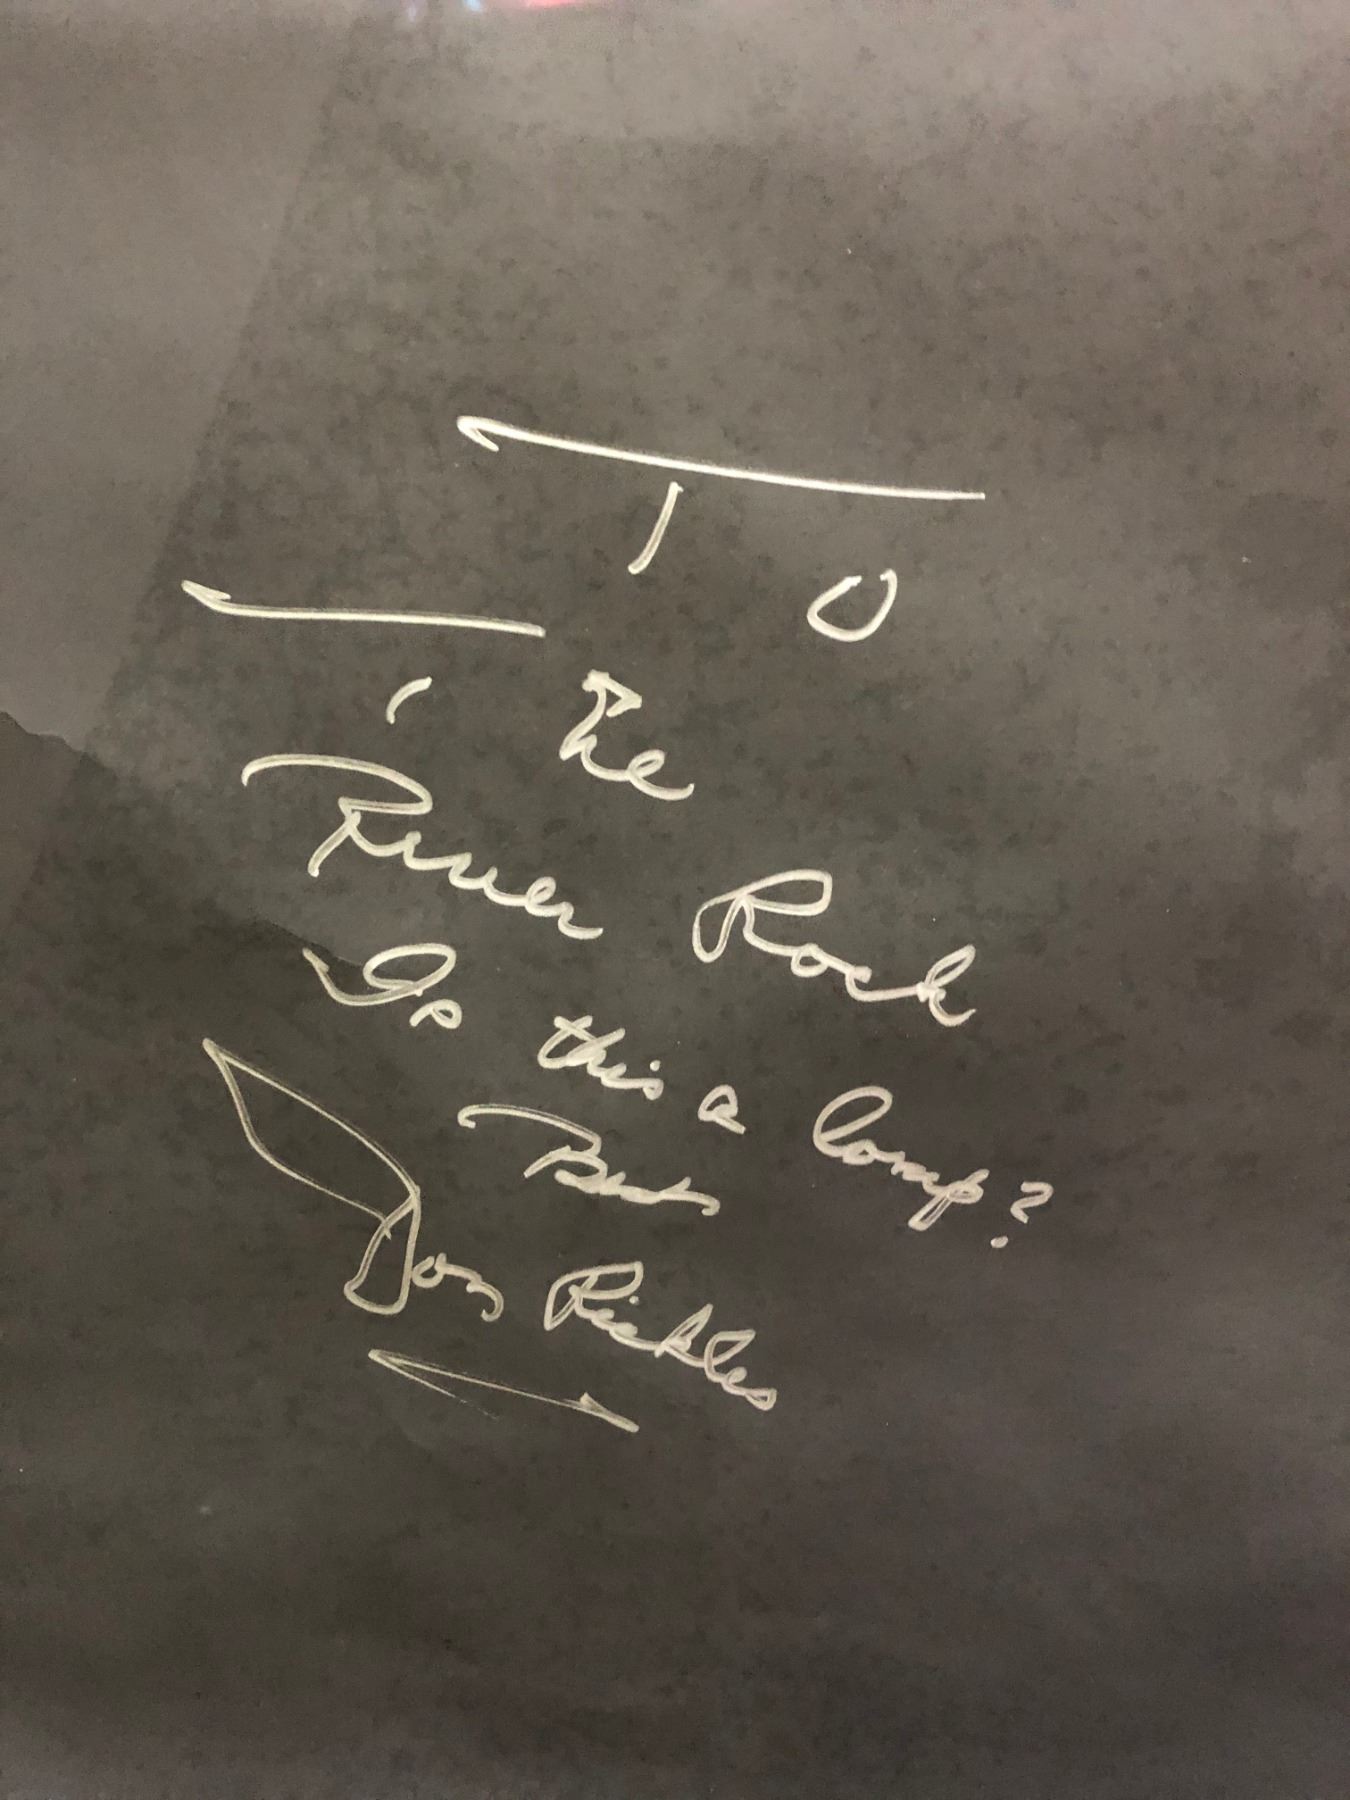 To
The
River Rock
Is this a comp?
Best
Don Rickles